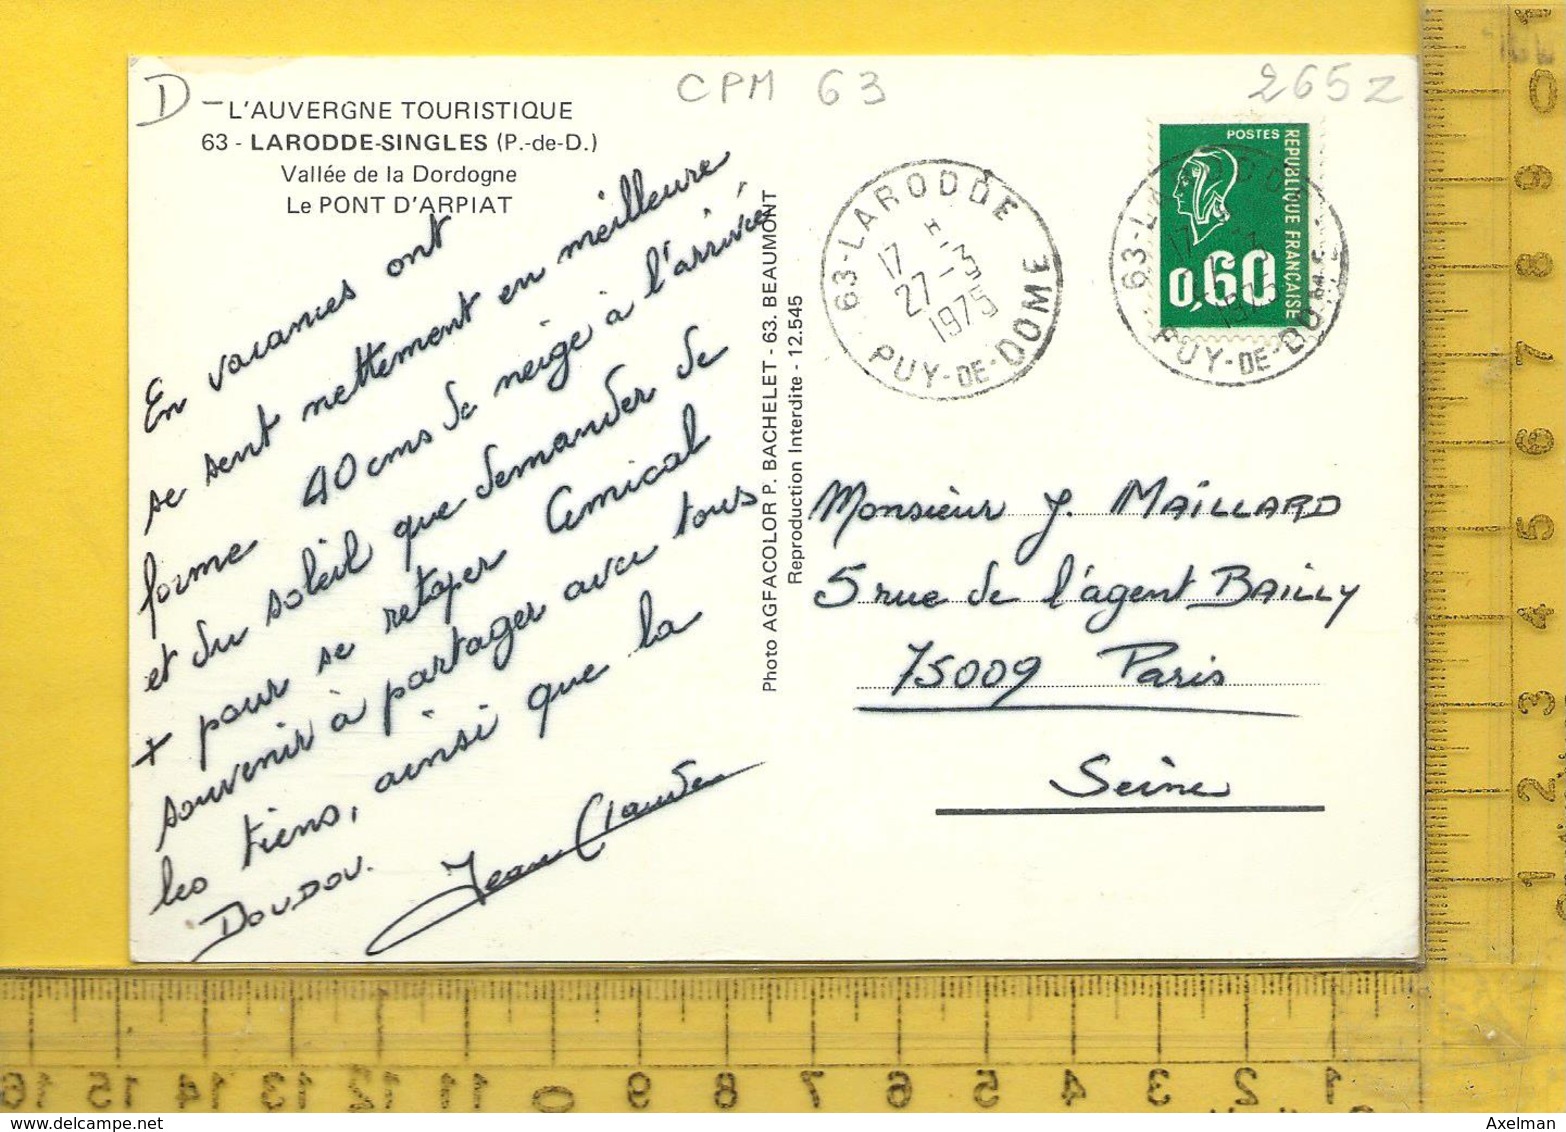 D CPM 63 2652
- L'AUVERGNE TOURISTIQUE
63 - LARODDE-SINGLES (P.-de-D.)
Vallée de la Dordogne
Le PONT D'ARPIAT
En vacances ont
se sent nettement en meilleure
forme 40 cms de neige à l'arrivée
et du soleil que demander de
+ pour se retaper Amical
souvenir à partager avec tous
les tiens, ainsi que la
DOUDOU.
Jean Claude
Photo AGFACOLOR P. BACHELET - 63. BEAUMONT
Reproduction Interdite - 12.545
63-LARODDE
17 H
27 -3
1975
PUY-DE-DOME
POSTES
REPUBLIQUE FRANÇAISE
0,60
63-LARODDE
17 H
1975
PUY-DE-DOME
Monsieur J. MAILLARD
5 rue de l'agent BAILLY
75009 Paris
Seine
0
9
8
7
6
5
4
3
2
1
16 15 14 13 12 11 0 9 8 7 6 5 4 3 2 1
https://www.delcampe.net
Axelman